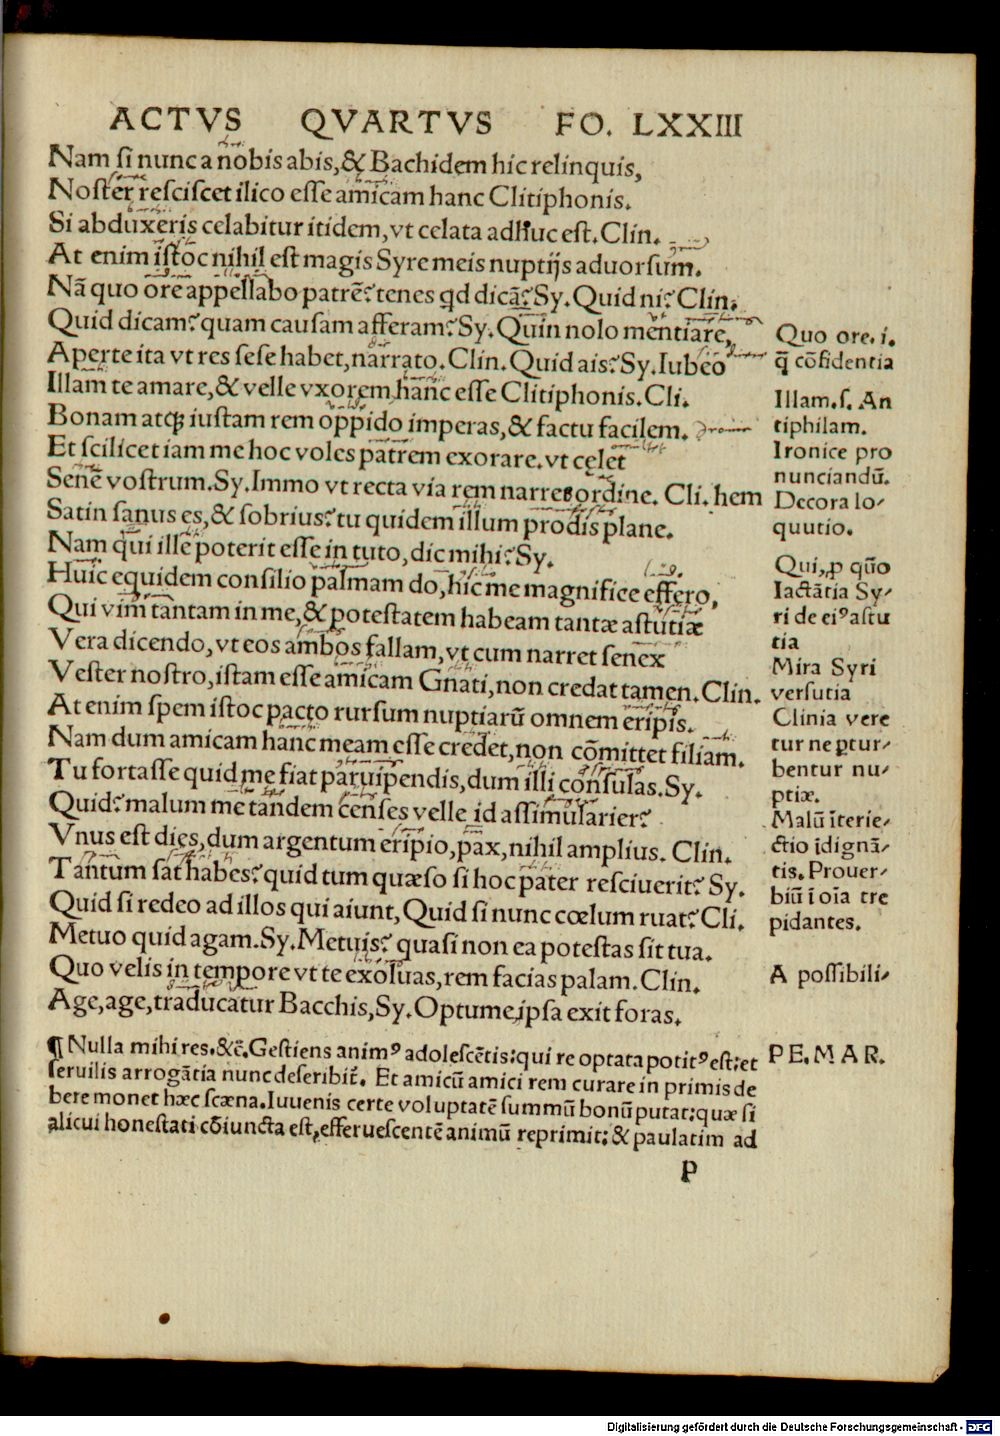 ACTVS QVARTVS FO. LXXIII
Nam si nunc a nobis abis, & Bachidem hic relinquis,
Noster resciscet ilico esse amicam hanc Clitiphonis.
Si abduxeris celabitur itidem, vt celata adhuc est. Clin.
At enim istoc nihil est magis Syre meis nuptijs aduorsum.
Nã quo ore appellabo patrẽ? tenes qd dicã? Sy. Quid ni? Clin.
Quid dicam? quam causam afferam? Sy. Quin nolo mentiare,
Aperte ita vt res sese habet, narrato. Clin. Quid ais? Sy. Iubeo
Illam te amare, & velle vxorem, hanc esse Clitiphonis. Cli.
Bonam atqꝫ iustam rem oppido imperas, & factu facilem.
Et scilicet iam me hoc voles patrem exorare. vt celet
Senẽ vostrum. Sy. Immo vt recta via rem narres ordine. Cli. hem
Satin sanus es, & sobrius? tu quidem illum prodis plane.
Nam qui ille poterit esse in tuto, dic mihi? Sy.
Huic equidem consilio palmam do, hic me magnifice effero,
Qui vim tantam in me, & potestatem habeam tantæ astutiæ
Vera dicendo, vt eos ambos fallam, vt cum narret senex
Vester nostro, istam esse amicam Gnati, non credat tamen. Clin.
At enim spem istoc pacto rursum nuptiarũ omnem eripis.
Nam dum amicam hanc meam esse credet, non cõmittet filiam.
Tu fortasse quid me fiat paruipendis, dum illi consulas. Sy.
Quid? malum me tandem censes velle id assimularier?
Vnus est dies, dum argentum eripio, pax, nihil amplius. Clin.
Tantum sat habes? quid tum quæso si hoc pater resciuerit? Sy.
Quid si redeo ad illos qui aiunt, Quid si nunc cœlum ruat? Cli.
Metuo quid agam. Sy. Metuis? quasi non ea potestas sit tua.
Quo velis in tempore vt te exoluas, rem facias palam. Clin.
Age, age, traducatur Bacchis, Sy. Optume, ipsa exit foras.
Quo ore. i.
q̃ cõfidentia
Illam. s. An
tiphilam.
Ironice pro
nunciandũ.
Decora lo-
quutio.
Qui, ꝓ quõ
Iactãtia Sy-
ri de eiꝰ astu
tia
Mira Syri
versutia
Clinia vere
tur ne ꝑtur-
bentur nu-
ptiæ.
Malũ ĩterie-
ctio idignã-
tis. Prouer-
biũ ĩ oĩa tre
pidantes.
A possibili-
¶ Nulla mihi res. &c̃. Gestiens animꝰ adolescẽtis: qui re optata potitꝰ est: et
seruilis arrogãtia nunc describit᷑. Et amicũ amici rem curare in primis de
bere monet hæc scæna. Iuuenis certe voluptatẽ summũ bonũ putat: quæ si
alicui honestati cõiuncta est, efferuescentẽ animũ reprimit: & paulatim ad
PE. MAR.
P
Digitalisierung gefördert durch die Deutsche Forschungsgemeinschaft - DFG